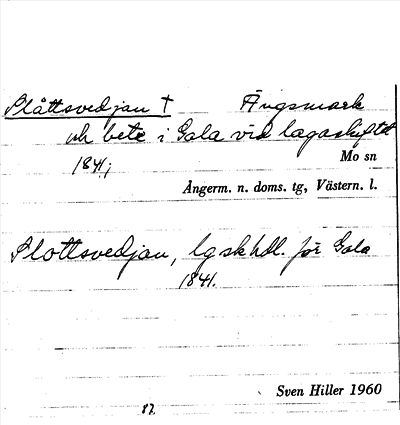 Slåttsvedjan † Ängsmark
och bete i Gala vid lagaskiftet
1841;
Mo sn
Ångerm. n. doms. tg, Västern. l.
Slottsvedjan, lgskhdl. för Gala
1841.
Sven Hiller 1960